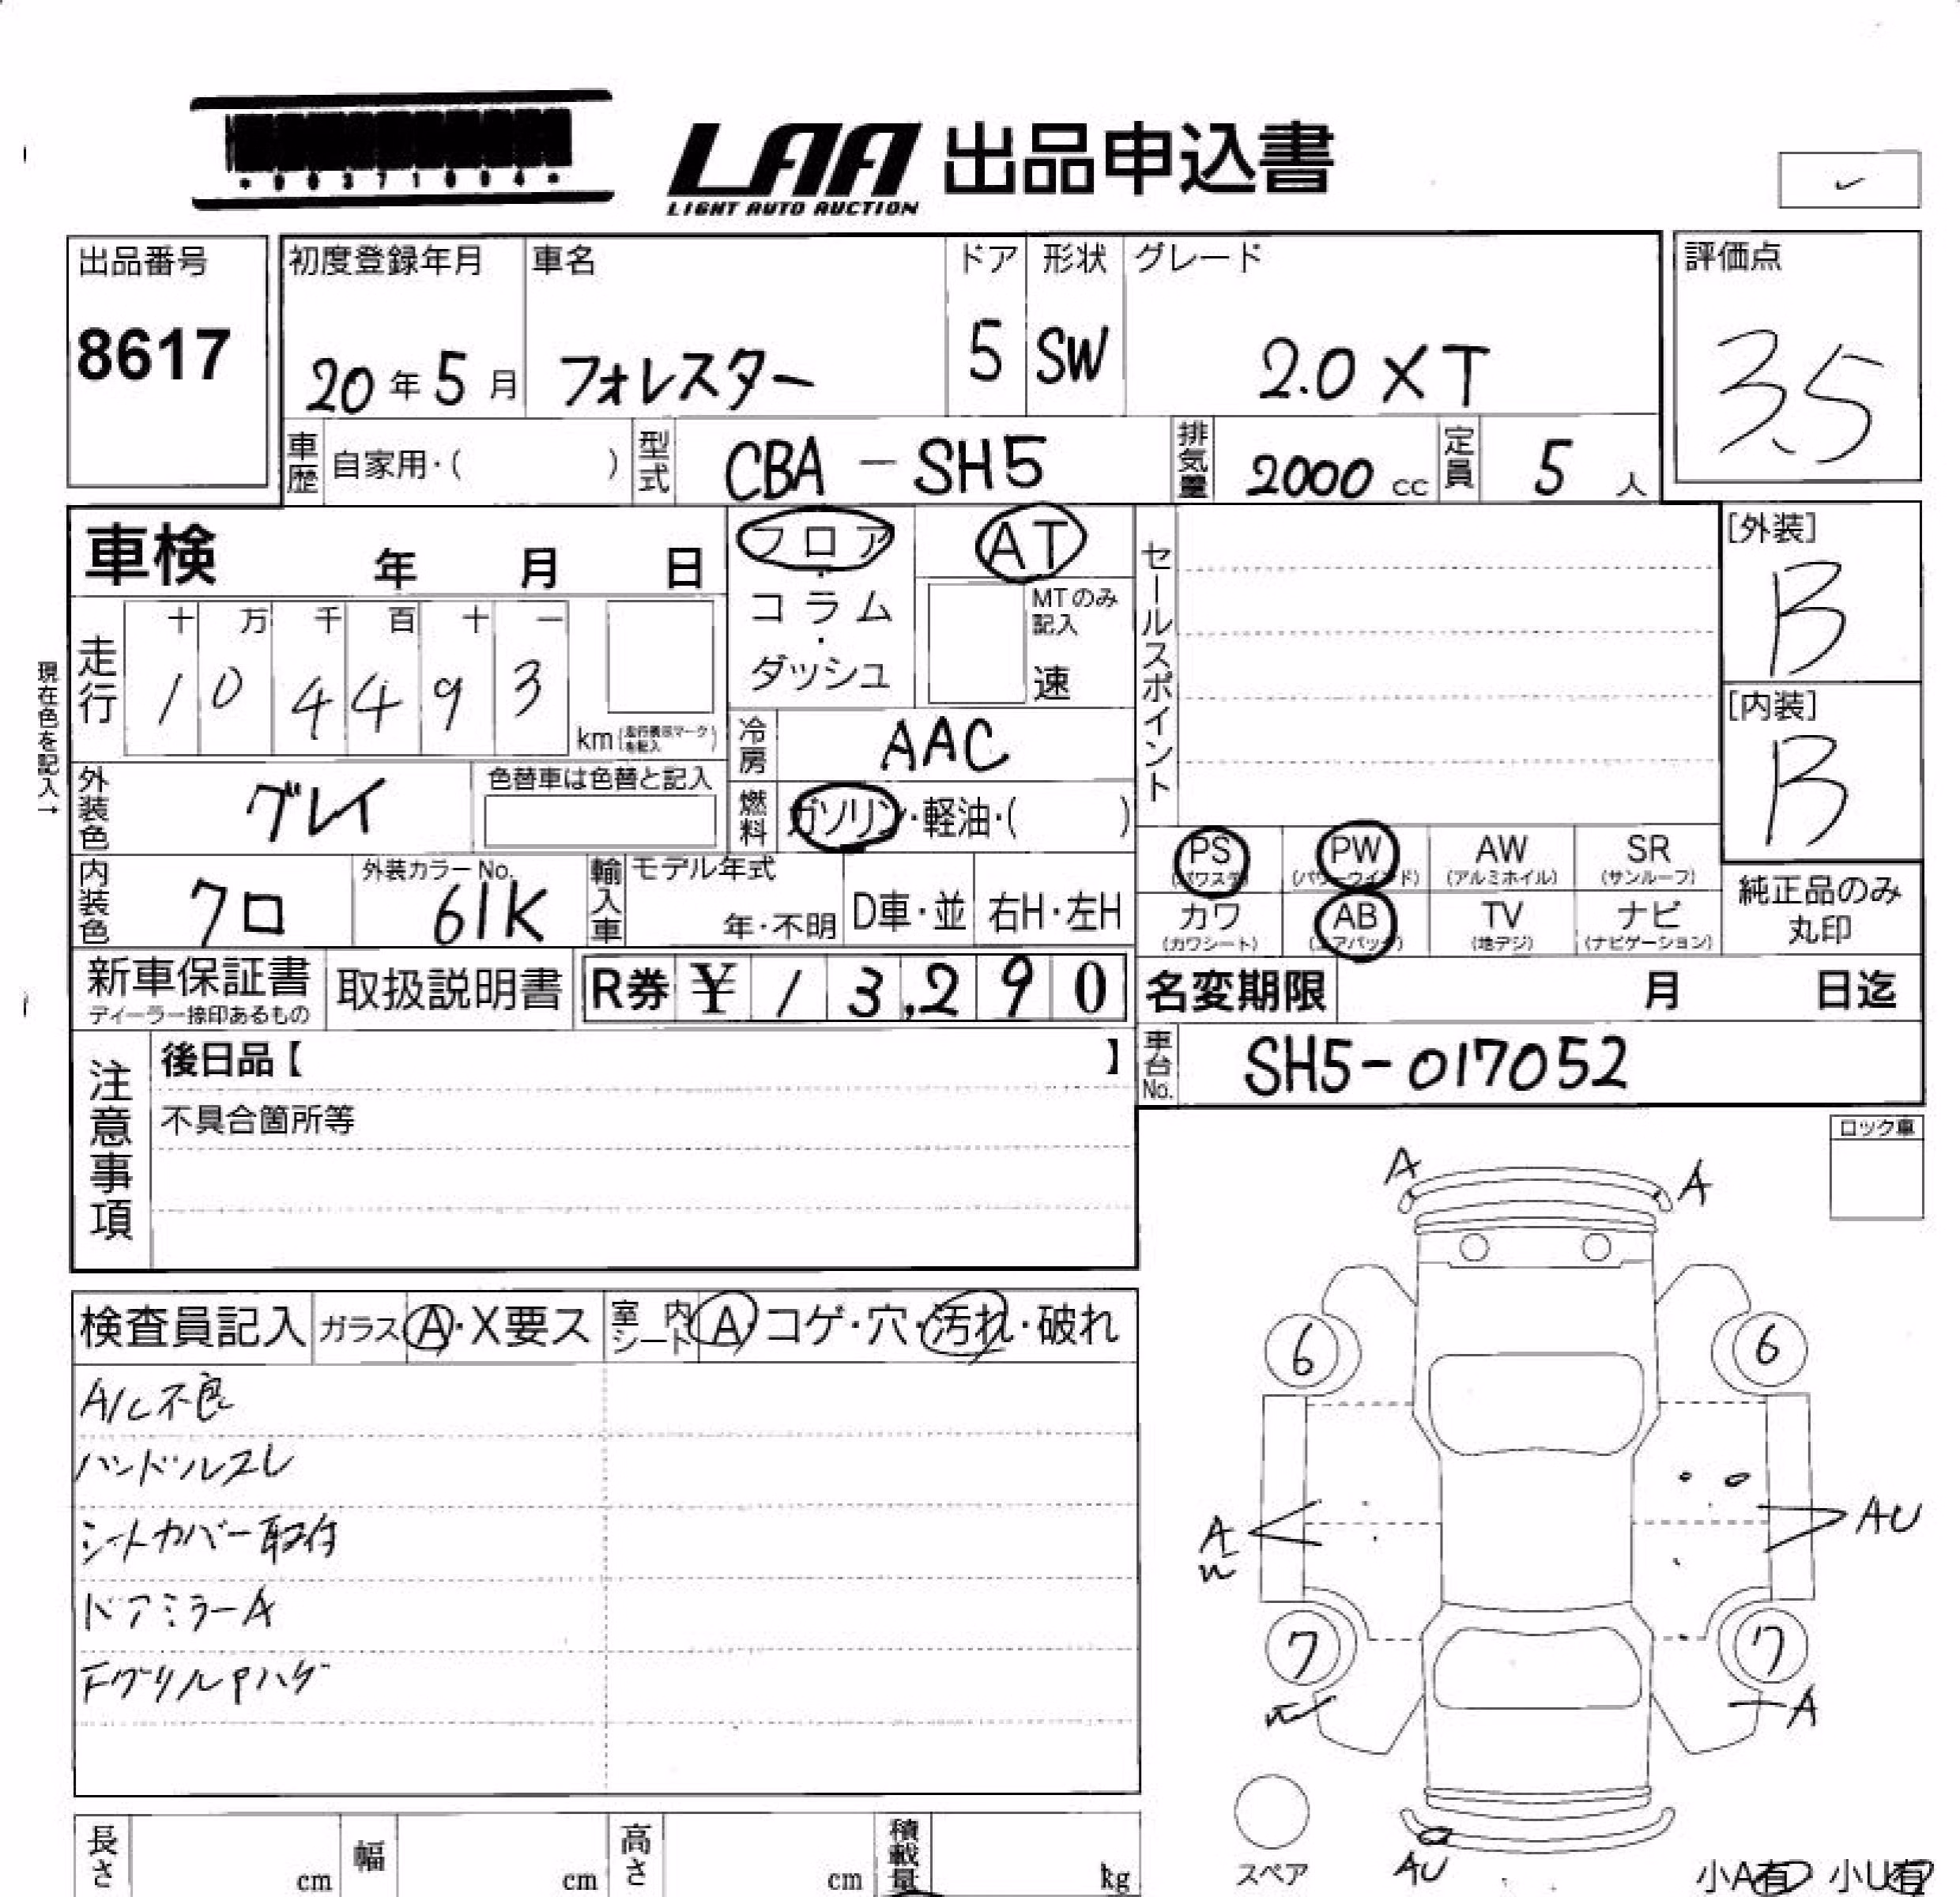 LAA 出品申込書
LIGHT AUTO AUCTION
出品番号
8617
初度登録年月
20年5月
車名
フォレスター
ドア
5
形状
SW
グレード
2.0 XT
評価点
3.5
車歴
自家用・( )
型式
CBA - SH5
排気量
2000 cc
定員
5 人
車検 年 月 日
フロア・コラム・ダッシュ
AT
MTのみ記入
速
セールスポイント
[外装]
B
[内装]
B
現在色を記入→
走行
十 万 千 百 十 一
1 0 4 4 9 3
km (走行表示マークを記入)
冷房
AAC
外装色
グレイ
色替車は色替と記入
燃料
ガソリン・軽油・( )
内装色
クロ
外装カラーNo.
61K
輸入車
モデル年式
年・不明
D車・並
右H・左H
PS (パワステ)
PW (パワーウインド)
AW (アルミホイル)
SR (サンルーフ)
カワ (カワシート)
AB (エアバッグ)
TV (地デジ)
ナビ (ナビゲーション)
純正品のみ
丸印
新車保証書
ディーラー捺印あるもの
取扱説明書
R券 ¥ 13,290
名変期限 月 日迄
車台No.
SH5-017052
注意事項
後日品【 】
不具合箇所等
ロック車
検査員記入
ガラス A・X要ス
室内シート A・コゲ・穴・汚れ・破れ
A/C不良
ハンドルスレ
シートカバー取付
ドアミラーA
FグリルPハゲ
A
A
6
6
A
AU
7
7
A
スペア
AU
小A有 小U有
長さ cm
幅 cm
高さ cm
積載量 kg